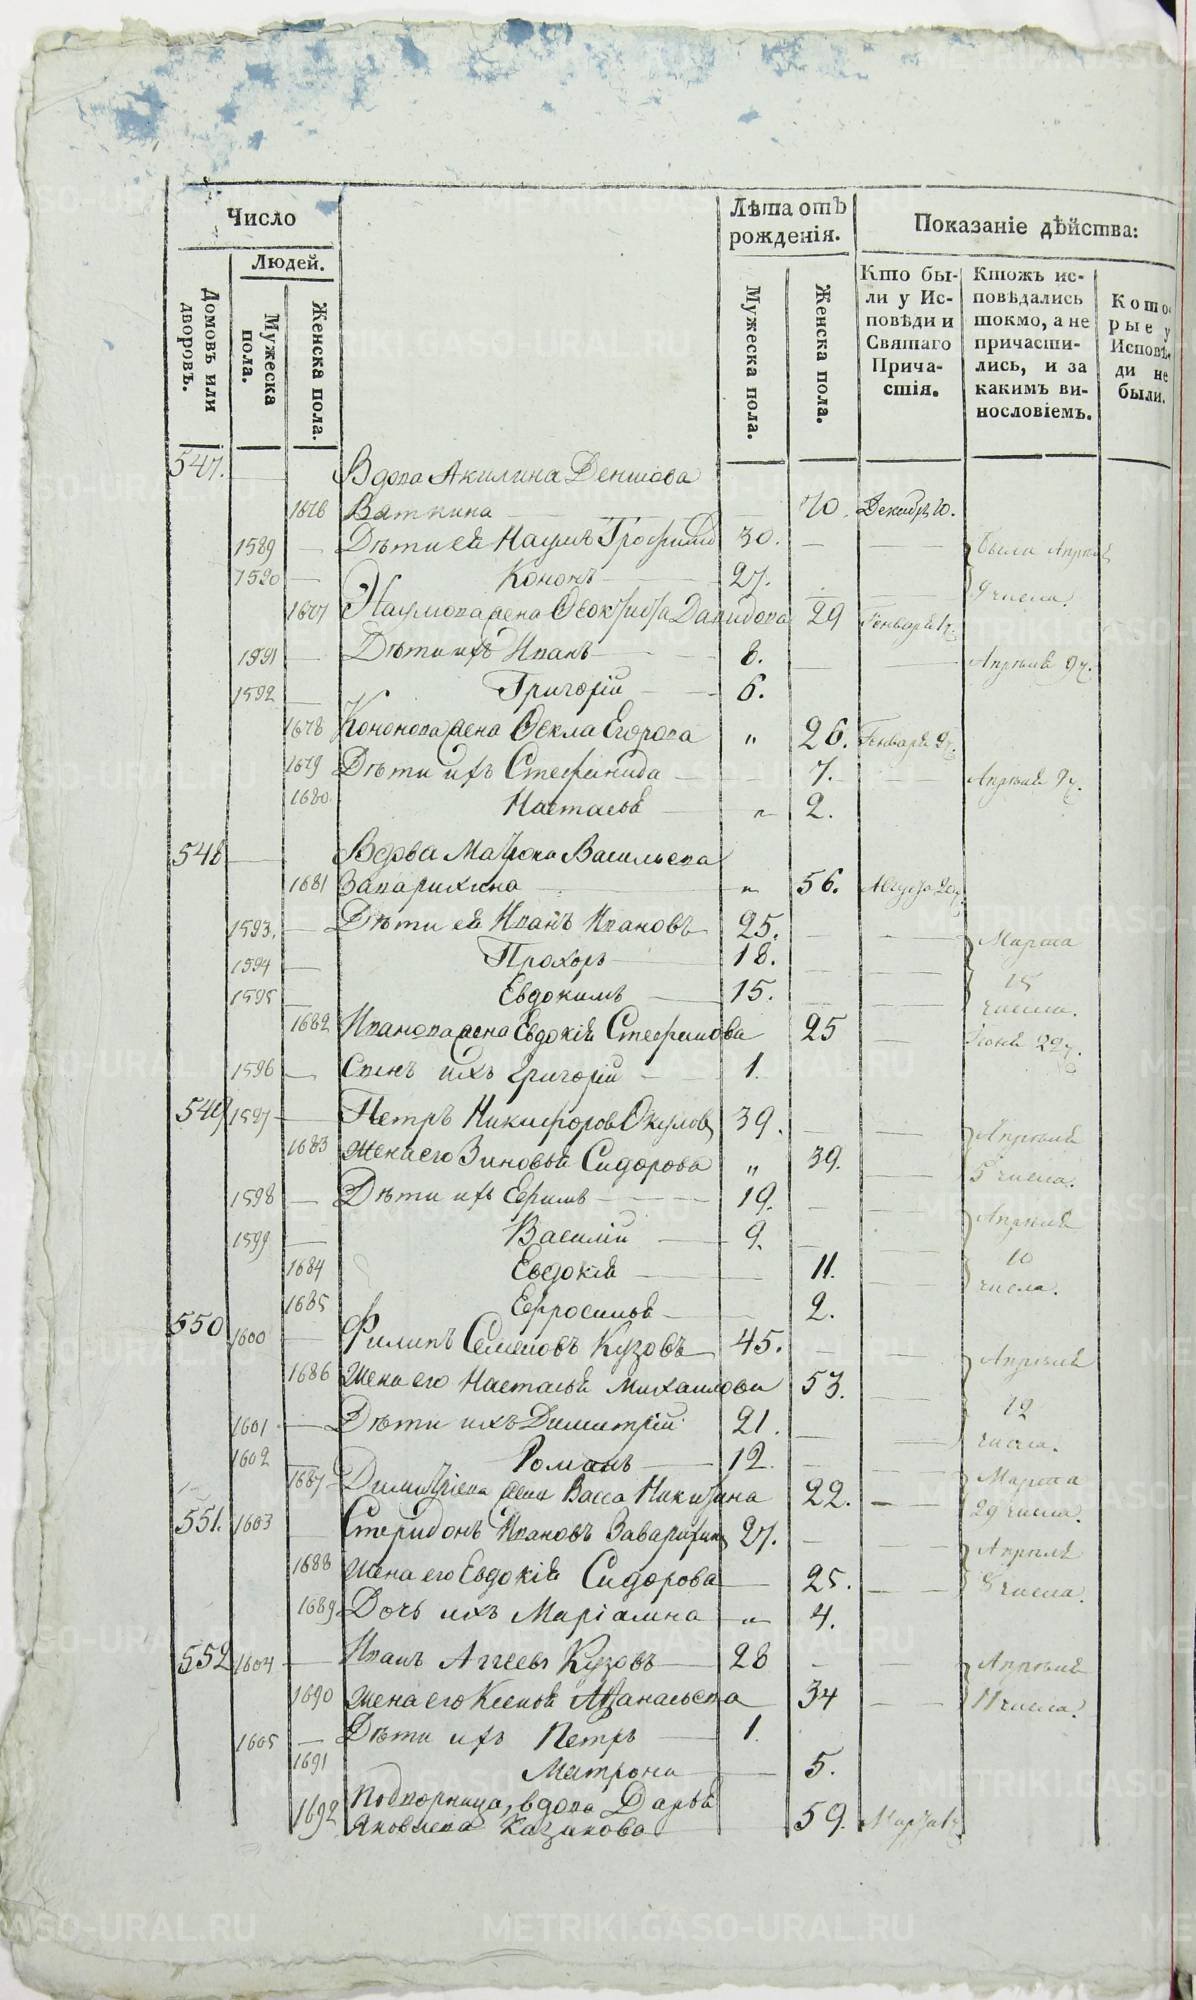 Число
Людей.
Домовъ или дворовъ.
Мужеска пола.
Женска пола.
Лѣта отъ рожденія.
Мужеска пола.
Женска пола.
Показаніе дѣйства:
Кто бы-
ли у Ис-
повѣди и
Святаго
Прича-
стія.
Ктожъ ис-
повѣдались
токмо, а не
причасти-
лись, и за
какимъ ви-
нословіемъ.
Кото-
рые у
Исповѣ-
ди не
были.
547. Вдова Акилина Денисова
1676 Вяткина 70. Декабр 20.
1589 Дѣти ея Наумъ Трофимов 30. были Апрѣля
1590 Кононъ 27. 9 числа.
1677 Наумова жена Ѳеоктиста Давидова 29 Генваря 1 ч.
1591 Дѣти ихъ Иванъ 8. Апрѣля 9 ч.
1592 Григорій 6.
1678 Кононова жена Ѳекла Егорова " 26. Генваря 9 ч.
1679 Дѣти ихъ Стефанида 7. Апрѣля 9 ч.
1680 Настасья " 2.
548 Вдова Матрона Васильева
1681 Заварихина " 56. Августа 20 ч.
1593. Дѣти ея Иванъ Ивановъ 25. Марта
1594 Прохоръ 18. 15
1595 Евдокимъ 15. числа.
1682 Иванова жена Евдокія Стефанова 25 Іюня 29 ч.
1596 Сынъ ихъ Григорій 1.
549 1597 Петръ Никифоровъ Окулов 39. Апрѣля
1683 Жена его Зиновья Сидорова " 39. 5 числа.
1598 Дѣти ихъ Ефимъ 19. Апрѣля
1599 Василій 9. 10
1684 Евдокія 11. числа.
1685 Ефросинья 2.
550 1600 Филипъ Семеновъ Кузовъ 45. Апрѣля
1686 Жена его Настасья Михаилова 53. 12
1601 Дѣти ихъ Димитрій 21. числа.
1602 Романъ 12.
1687 Димитріева жена Васса Никитина 22. Марта 29 числа.
551. 1603 Спиридонъ Ивановъ Заварихинъ 27. Апрѣля
1688 Жена его Евдокія Сидорова 25. 8 числа.
1689 Дочь ихъ Маріамна " 4.
552 1604 Иванъ Аггеевъ Кузовъ 28 Апрѣля
1690 Жена его Ксенья Афанасьева 34 11 числа.
1605 Дѣти ихъ Петръ 1.
1691 Матрона 5.
1692 Подворница, вдова Дарья
Яковлева Казакова 59. Марта 1 ч.
METRIKI.GASO-URAL.RU